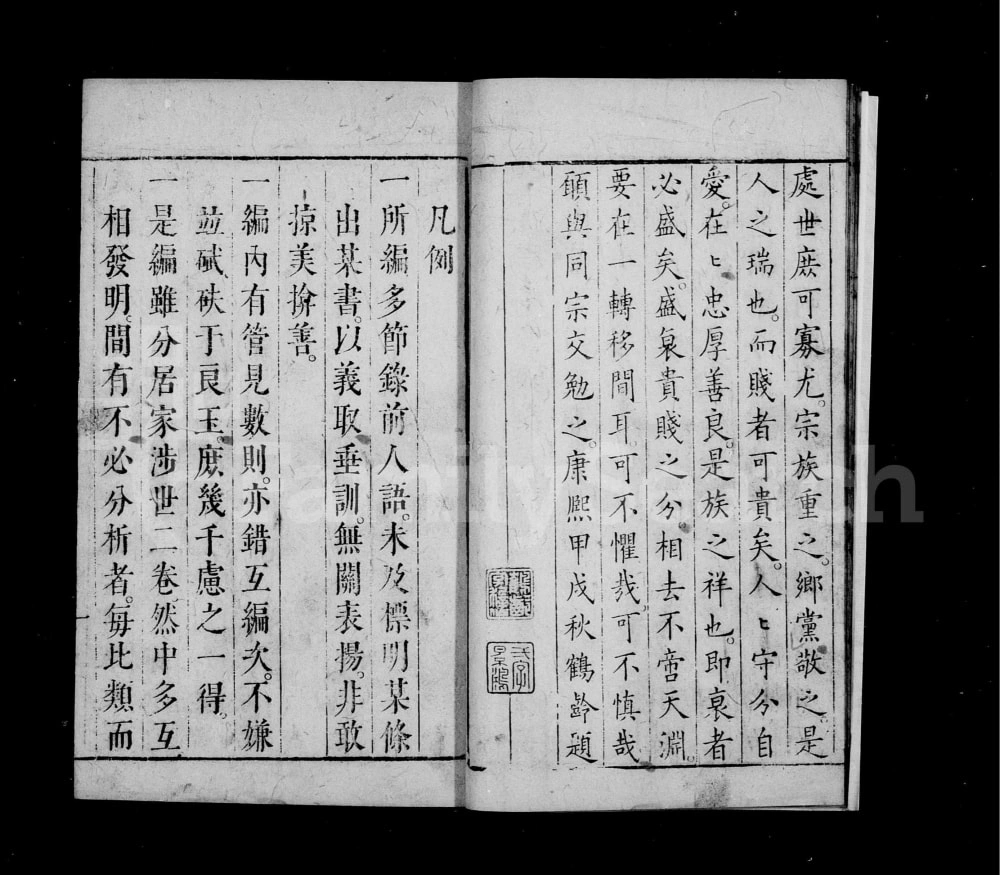 處世庶可寡尤。宗族重之。鄉黨敬之。是
人之瑞也。而賤者可貴矣。人〻守分自
愛。在〻忠厚善良。是族之祥也。即衰者
必盛矣。盛衰貴賤之分。相去不啻天淵。
要在一轉移間耳。可不懼哉。可不慎哉
願與同宗交勉之。康熙甲戌秋鶴齡題
凡例
一所編多節錄前人語。未及標明某條
出某書。以義取垂訓。無關表揚。非敢
掠美揜善。
一編內有管見數則。亦錯互編次。不嫌
竝碔砆于良玉。庶幾千慮之一得。
一是編雖分居家涉世二卷。然中多互
相發明。間有不必分析者。每比類而
一
FamilySearch